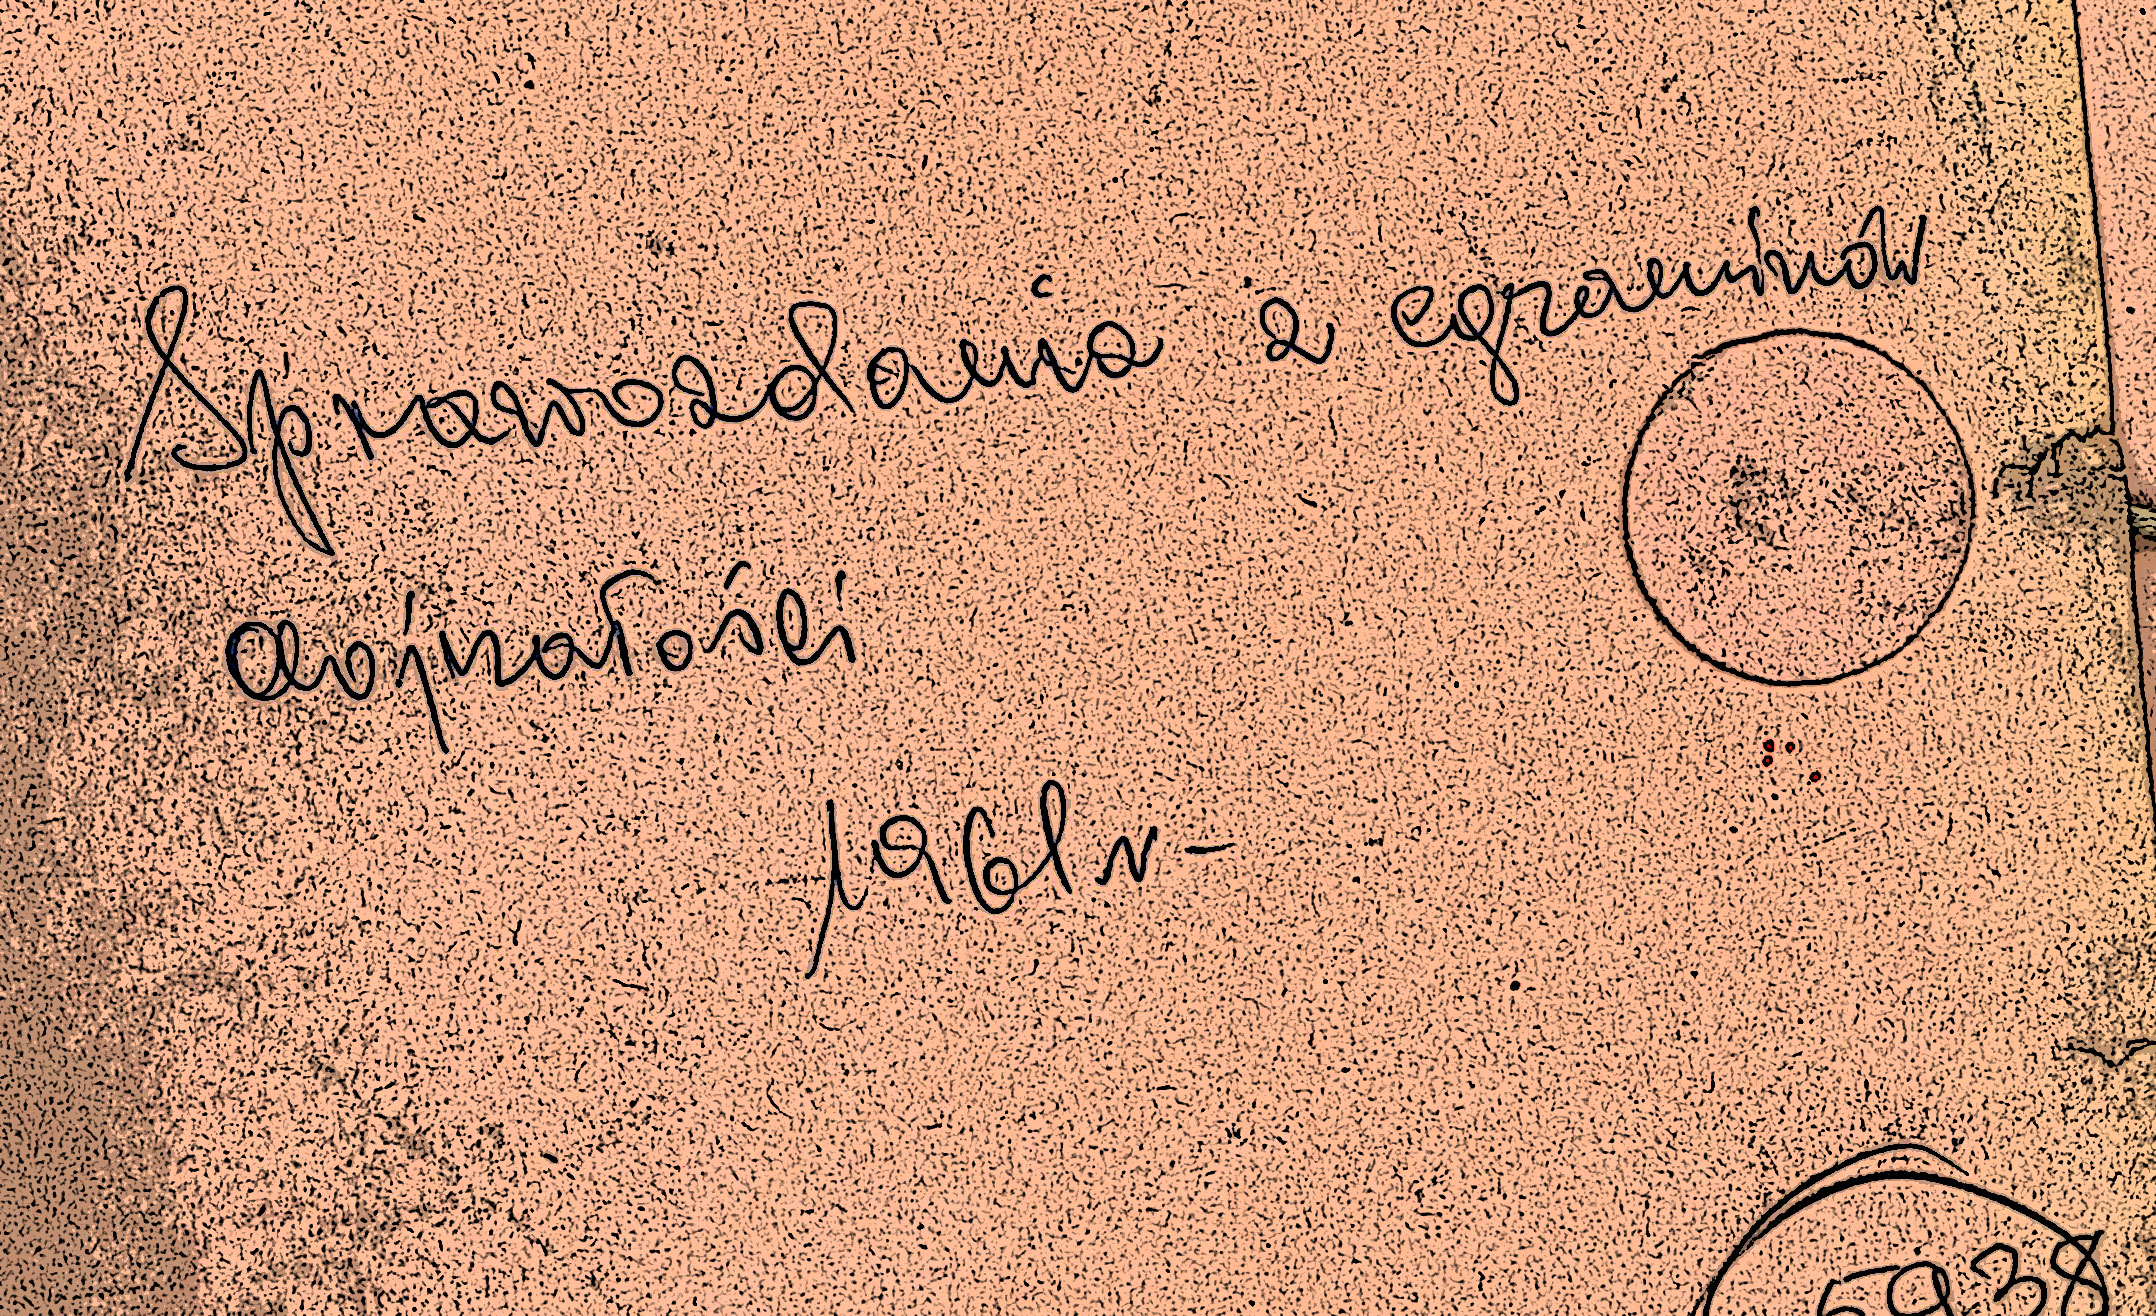 Sprawozdania z egzaminów
dojrzałości
1961 r-
5938